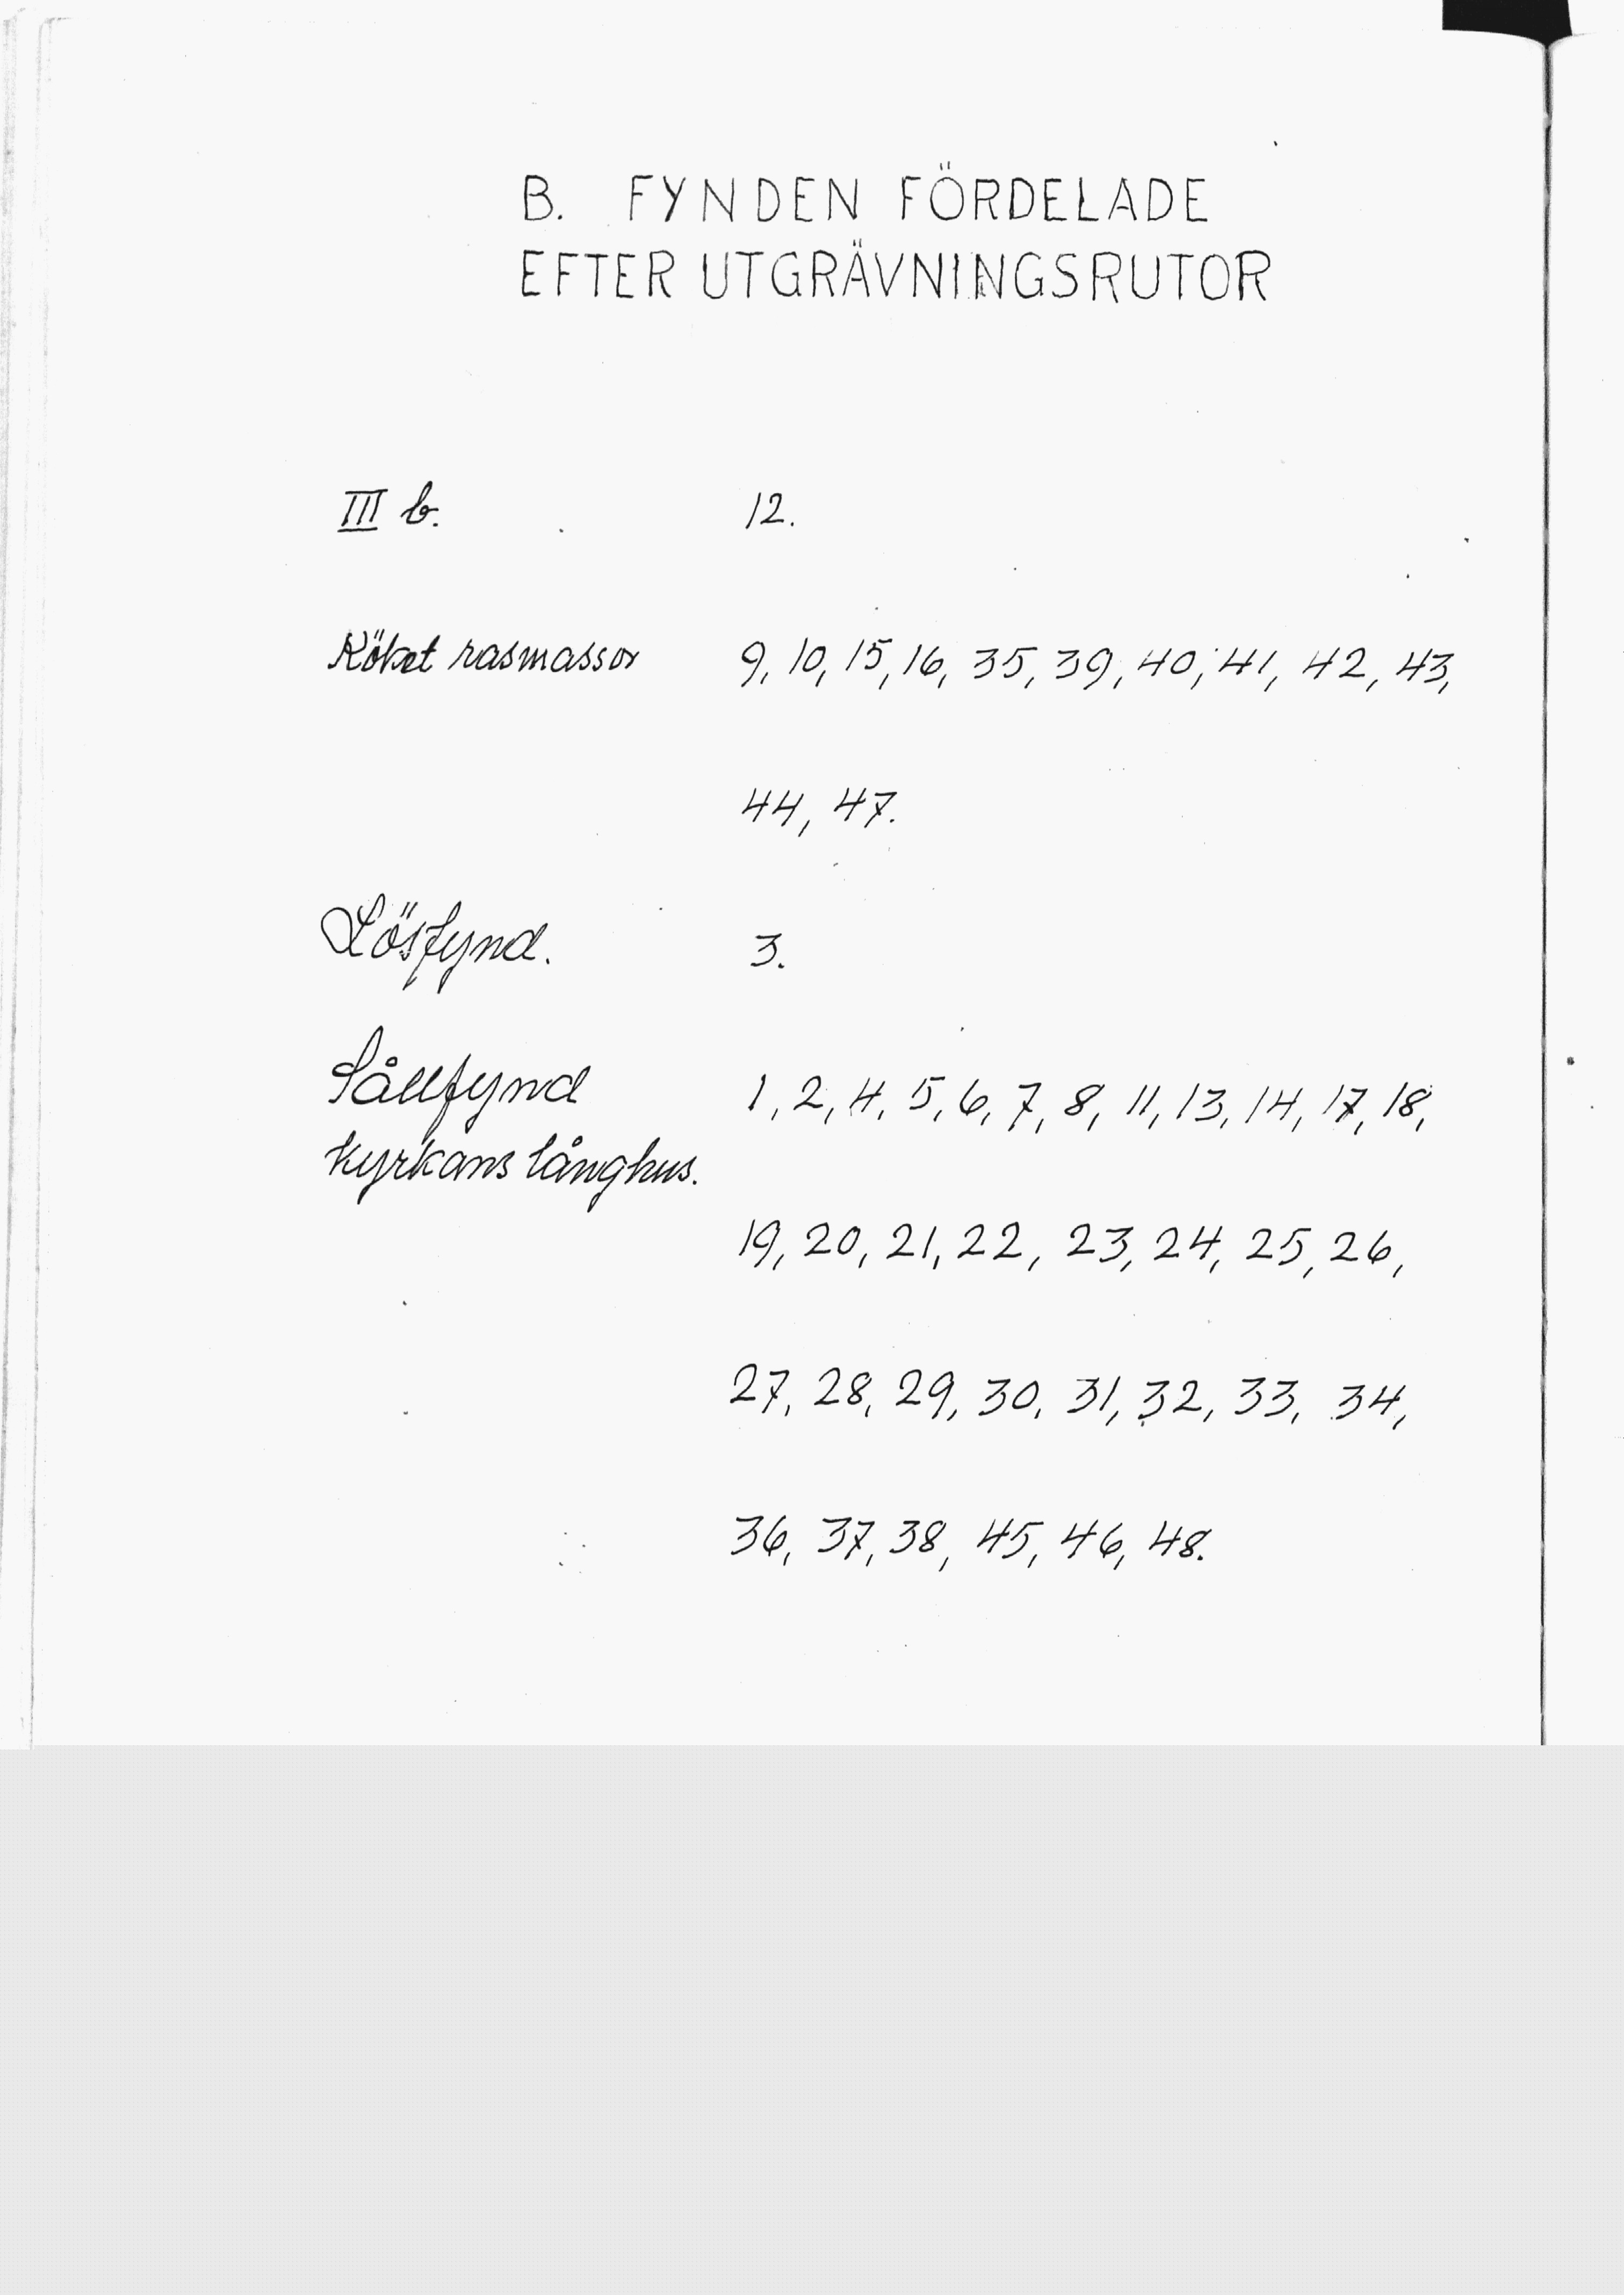 B. FYNDEN FÖRDELADE
EFTER UTGRÄVNINGSRUTOR
III b. 12.
Köket rasmassor 9, 10, 15, 16, 35, 39, 40, 41, 42, 43,
44, 47.
Lösfynd. 3.
Sållfynd 1, 2, 4, 5, 6, 7, 8, 11, 13, 14, 17, 18,
kyrkans långhus.
19, 20, 21, 22, 23, 24, 25, 26,
27, 28, 29, 30, 31, 32, 33, 34,
36, 37, 38, 45, 46, 48.